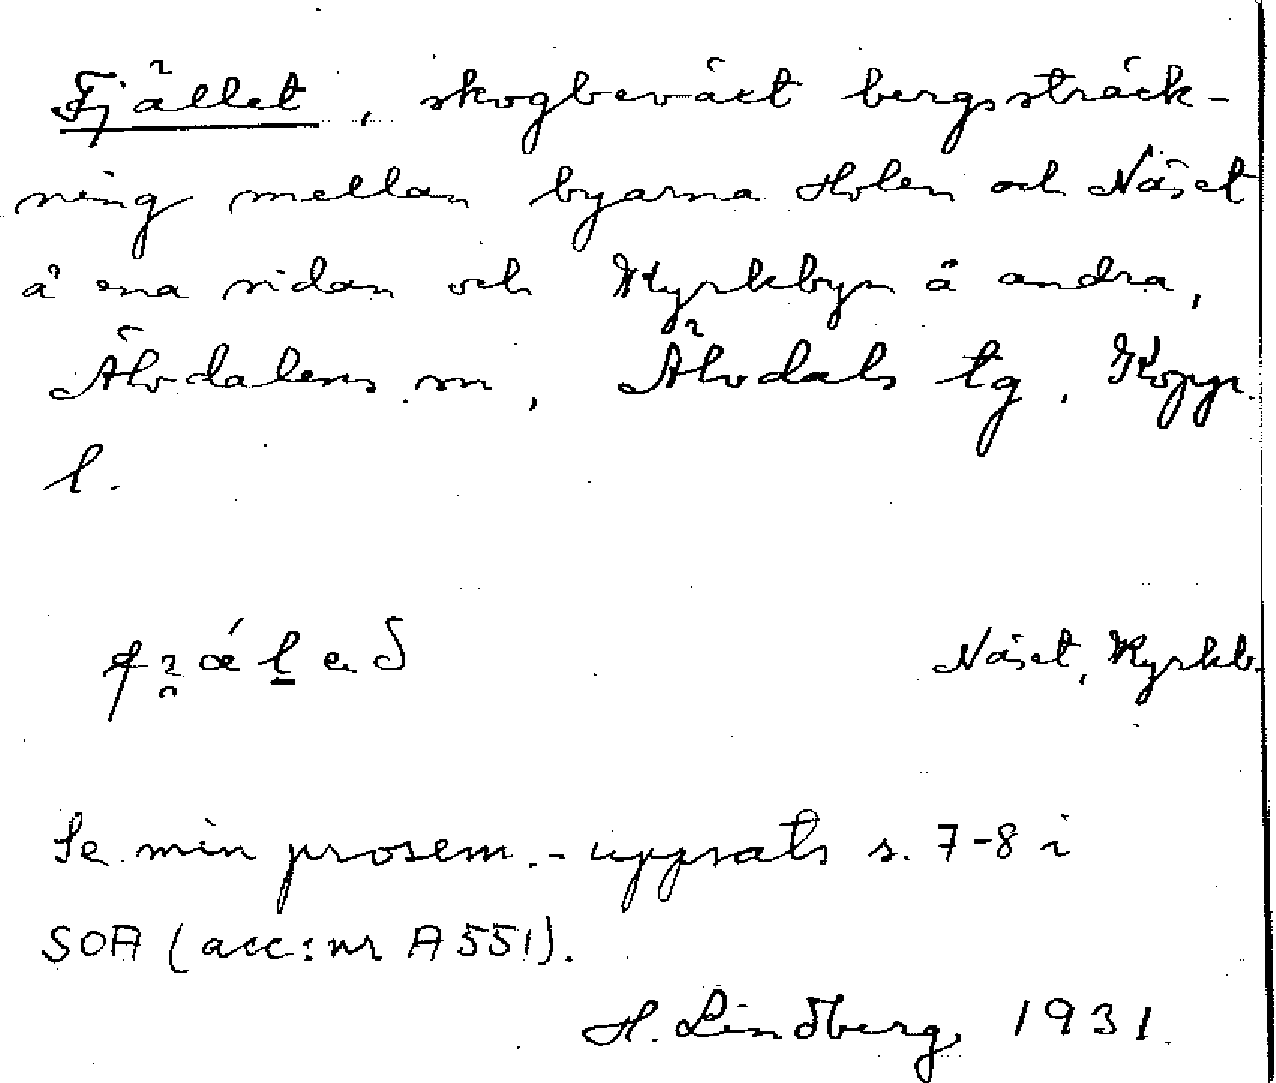 Fjället, skogbeväxt bergssträck-
ning mellan byarna Holen och Näset
å ena sidan och Kyrkbyn å andra,
Älvdalens sn, Älvdals tg, Koppr.
l.
Näset, Kyrkb.
Se min prosem.-uppsats s. 7-8 i
SOA (acc:nr A 551).
H. Lindberg, 1931.